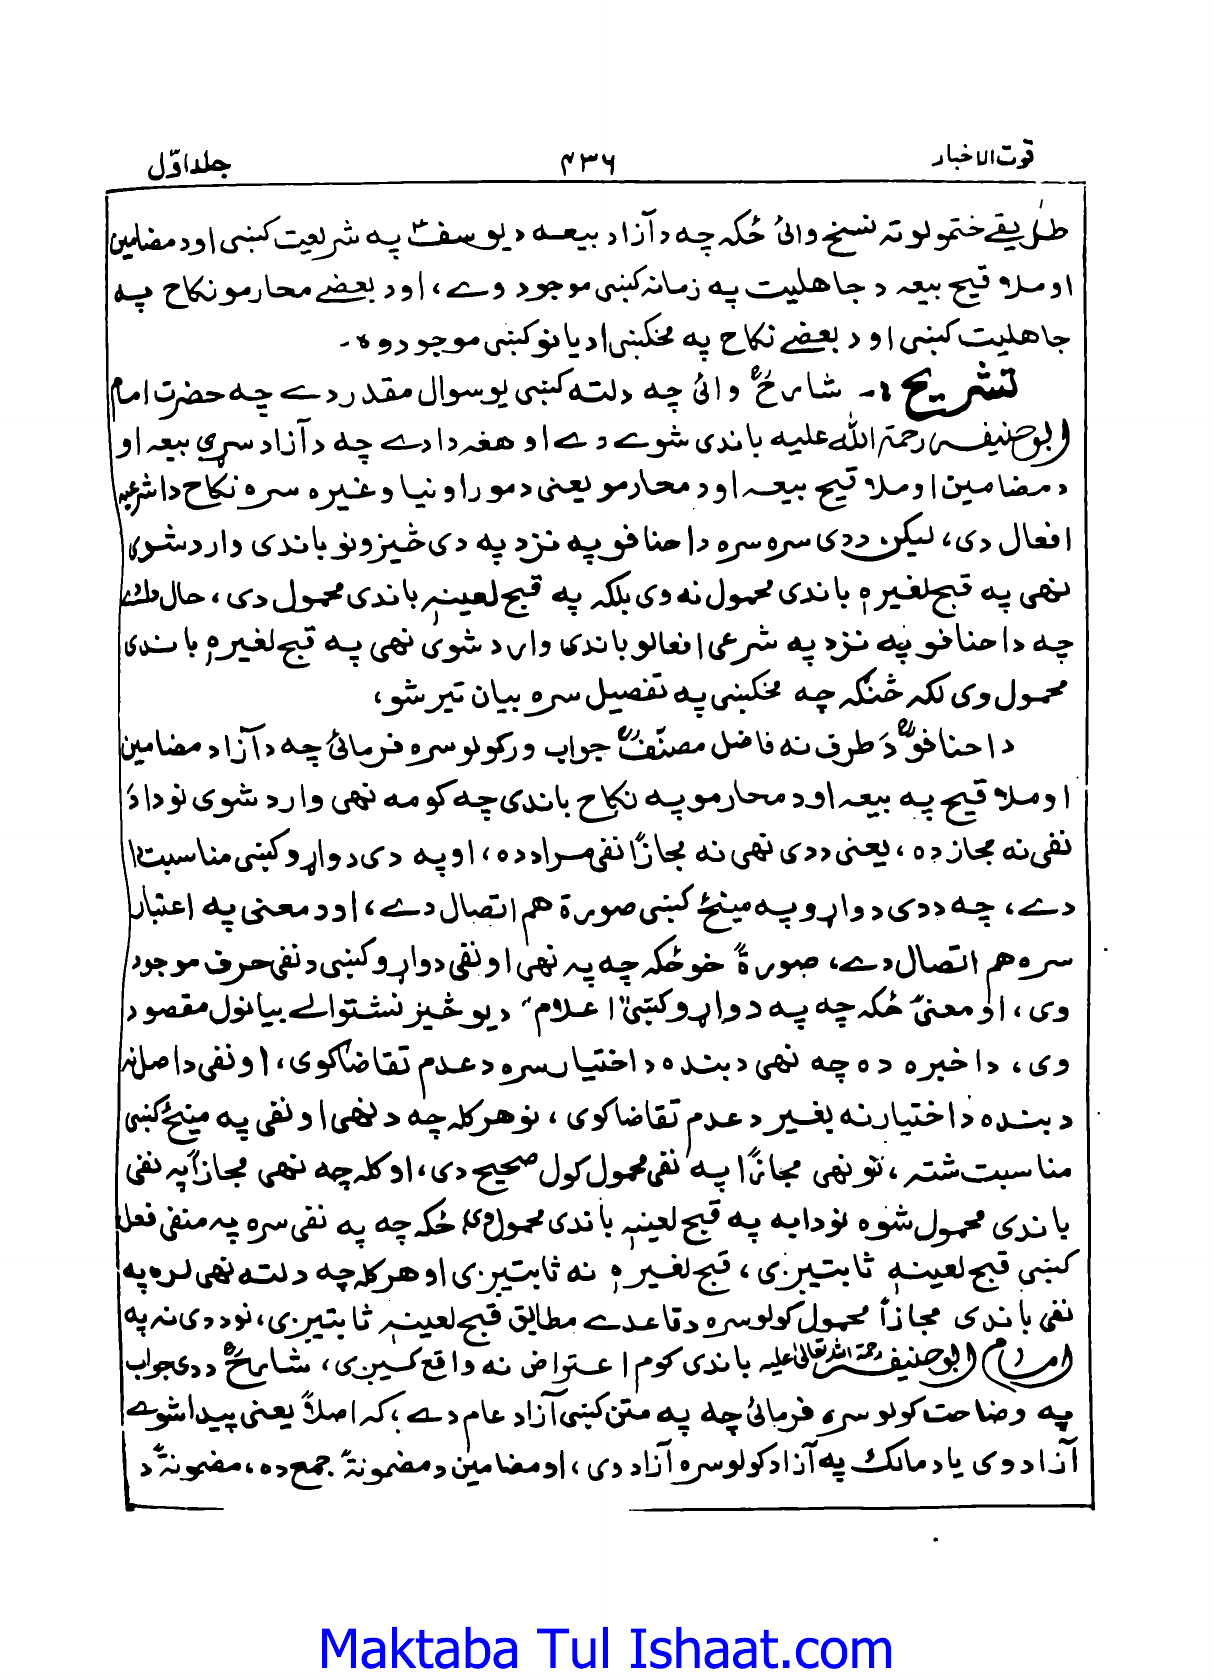 قوت الاخبار ۴۳۶ جلد اوّل
طریقے ختمولو ته نسخ وائی ځکه چه د آزاد بیعه د یوسفؑ په شریعت کښی او د مضامین
او ملا قیح بیعه د جاهلیت په زمانه کښی موجود وے، او د بعضے محارمو نکاح په
جاهلیت کښی او د بعضے نکاح په مخکښی ادیانو کښی موجود وه۔
تشریح :۔ شارحؒ وائی چه دلته کښی یو سوال مقدر دے چه حضرت امام
ابوحنیفه رحمة الله علیه باندی شوے دے او هغه دا دے چه د آزاد سړی بیعه او
د مضامین او ملا قیح بیعه او د محارمو یعنی د مور او نیا وغیره سره نکاح دا شرعیه
افعال دی، لیکن ددی سره سره د احنافو په نزد په دی څیزونو باندی وارد شوی
نهی په قبح لغیره باندی محمول نه وی بلکه په قبح لعینه باندی محمول دی، حال دادے
چه د احنافو په نزد په شرعی افعالو باندی وارد شوی نهی په قبح لغیره باندی
محمول وی لکه څنګه چه مخکښی په تفصیل سره بیان تیر شو،
د احنافوؒ دَ طرف نه فاضل مصنفؒ جواب ورکولو سره فرمائی چه د آزاد مضامین
او ملا قیح په بیعه او د محارمو په نکاح باندی چه کومه نهی وارد شوی نو دا دَ
نفی نه مجاز ده، یعنی ددی نهی نه مجازًا نفی مراد ده، او په دی دواړو کښی مناسبت
دے، چه ددی دواړو په مینځ کښی صورة هم اتصال دے، او د معنی په اعتبار
سره هم اتصال دے، صورةً خو ځکه چه په نهی او نفی دواړو کښی د نفی حرف موجود
وی، او معنیً ځکه چه په دواړو کښی اعلام د یو څیز نشتوالے بیانول مقصود
وی، دا خبره ده چه نهی د بنده د اختیار سره د عدم تقاضا کوی، او نفی د اصل نه
د بنده د اختیار نه بغیر د عدم تقاضا کوی، نو هر کله چه د نهی او نفی په مینځ کښی
مناسبت شته، نو نهی مجازًا په نفی محمول کول صحیح دی، او کله چه نهی مجازاً په نفی
باندی محمول شوه نو دا به په قبح لعینه باندی محمول وی ځکه چه په نفی سره په منفی فعل
کښی قبح لعینه ثابتیږی، قبح لغیره نه ثابتیږی او هر کله چه دلته نهی لره په
نفی باندی مجازاً محمول کولو سره د قاعدے مطابق قبح لعینه ثابتیږی، نو ددی نه په
امام ابوحنیفه رحمة الله تعالیٰ علیه باندی کوم اعتراض نه واقع کیږی، شارحؒ ددی جواب
په وضاحت کولو سره فرمائی چه په متن کښی آزاد عام دے، که اصلاً یعنی پیدا شوے
آزاد وی یا د مالک په آزاد کولو سره آزاد وی، او مضامین د مضمونة جمع ده، مضمونة د
Maktaba Tul Ishaat.com